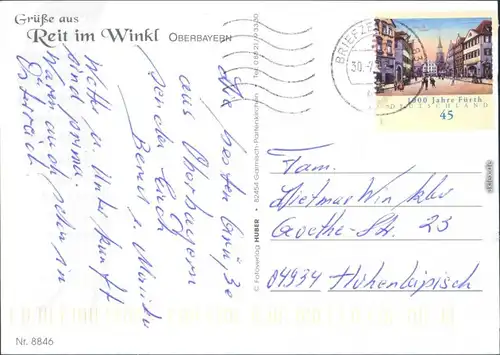 Grüße aus
Reit im Winkl OBERBAYERN
Die besten Grüße
aus Oberbayern
senden Euch
Bernd u. Monika
Wetter u. Unterkunft
sind prima.
Waren auch schon in
Östreich.
© Fotoverlag HUBER • 82454 Garmisch-Partenkirchen • Tel.
BRIEFZE
30.
1000 Jahre Fürth
DEUTSCHLAND
45
Fam.
Dietmar Winkler
Goethe-Str. 23
04934 Hohenleipisch
Nr. 8846